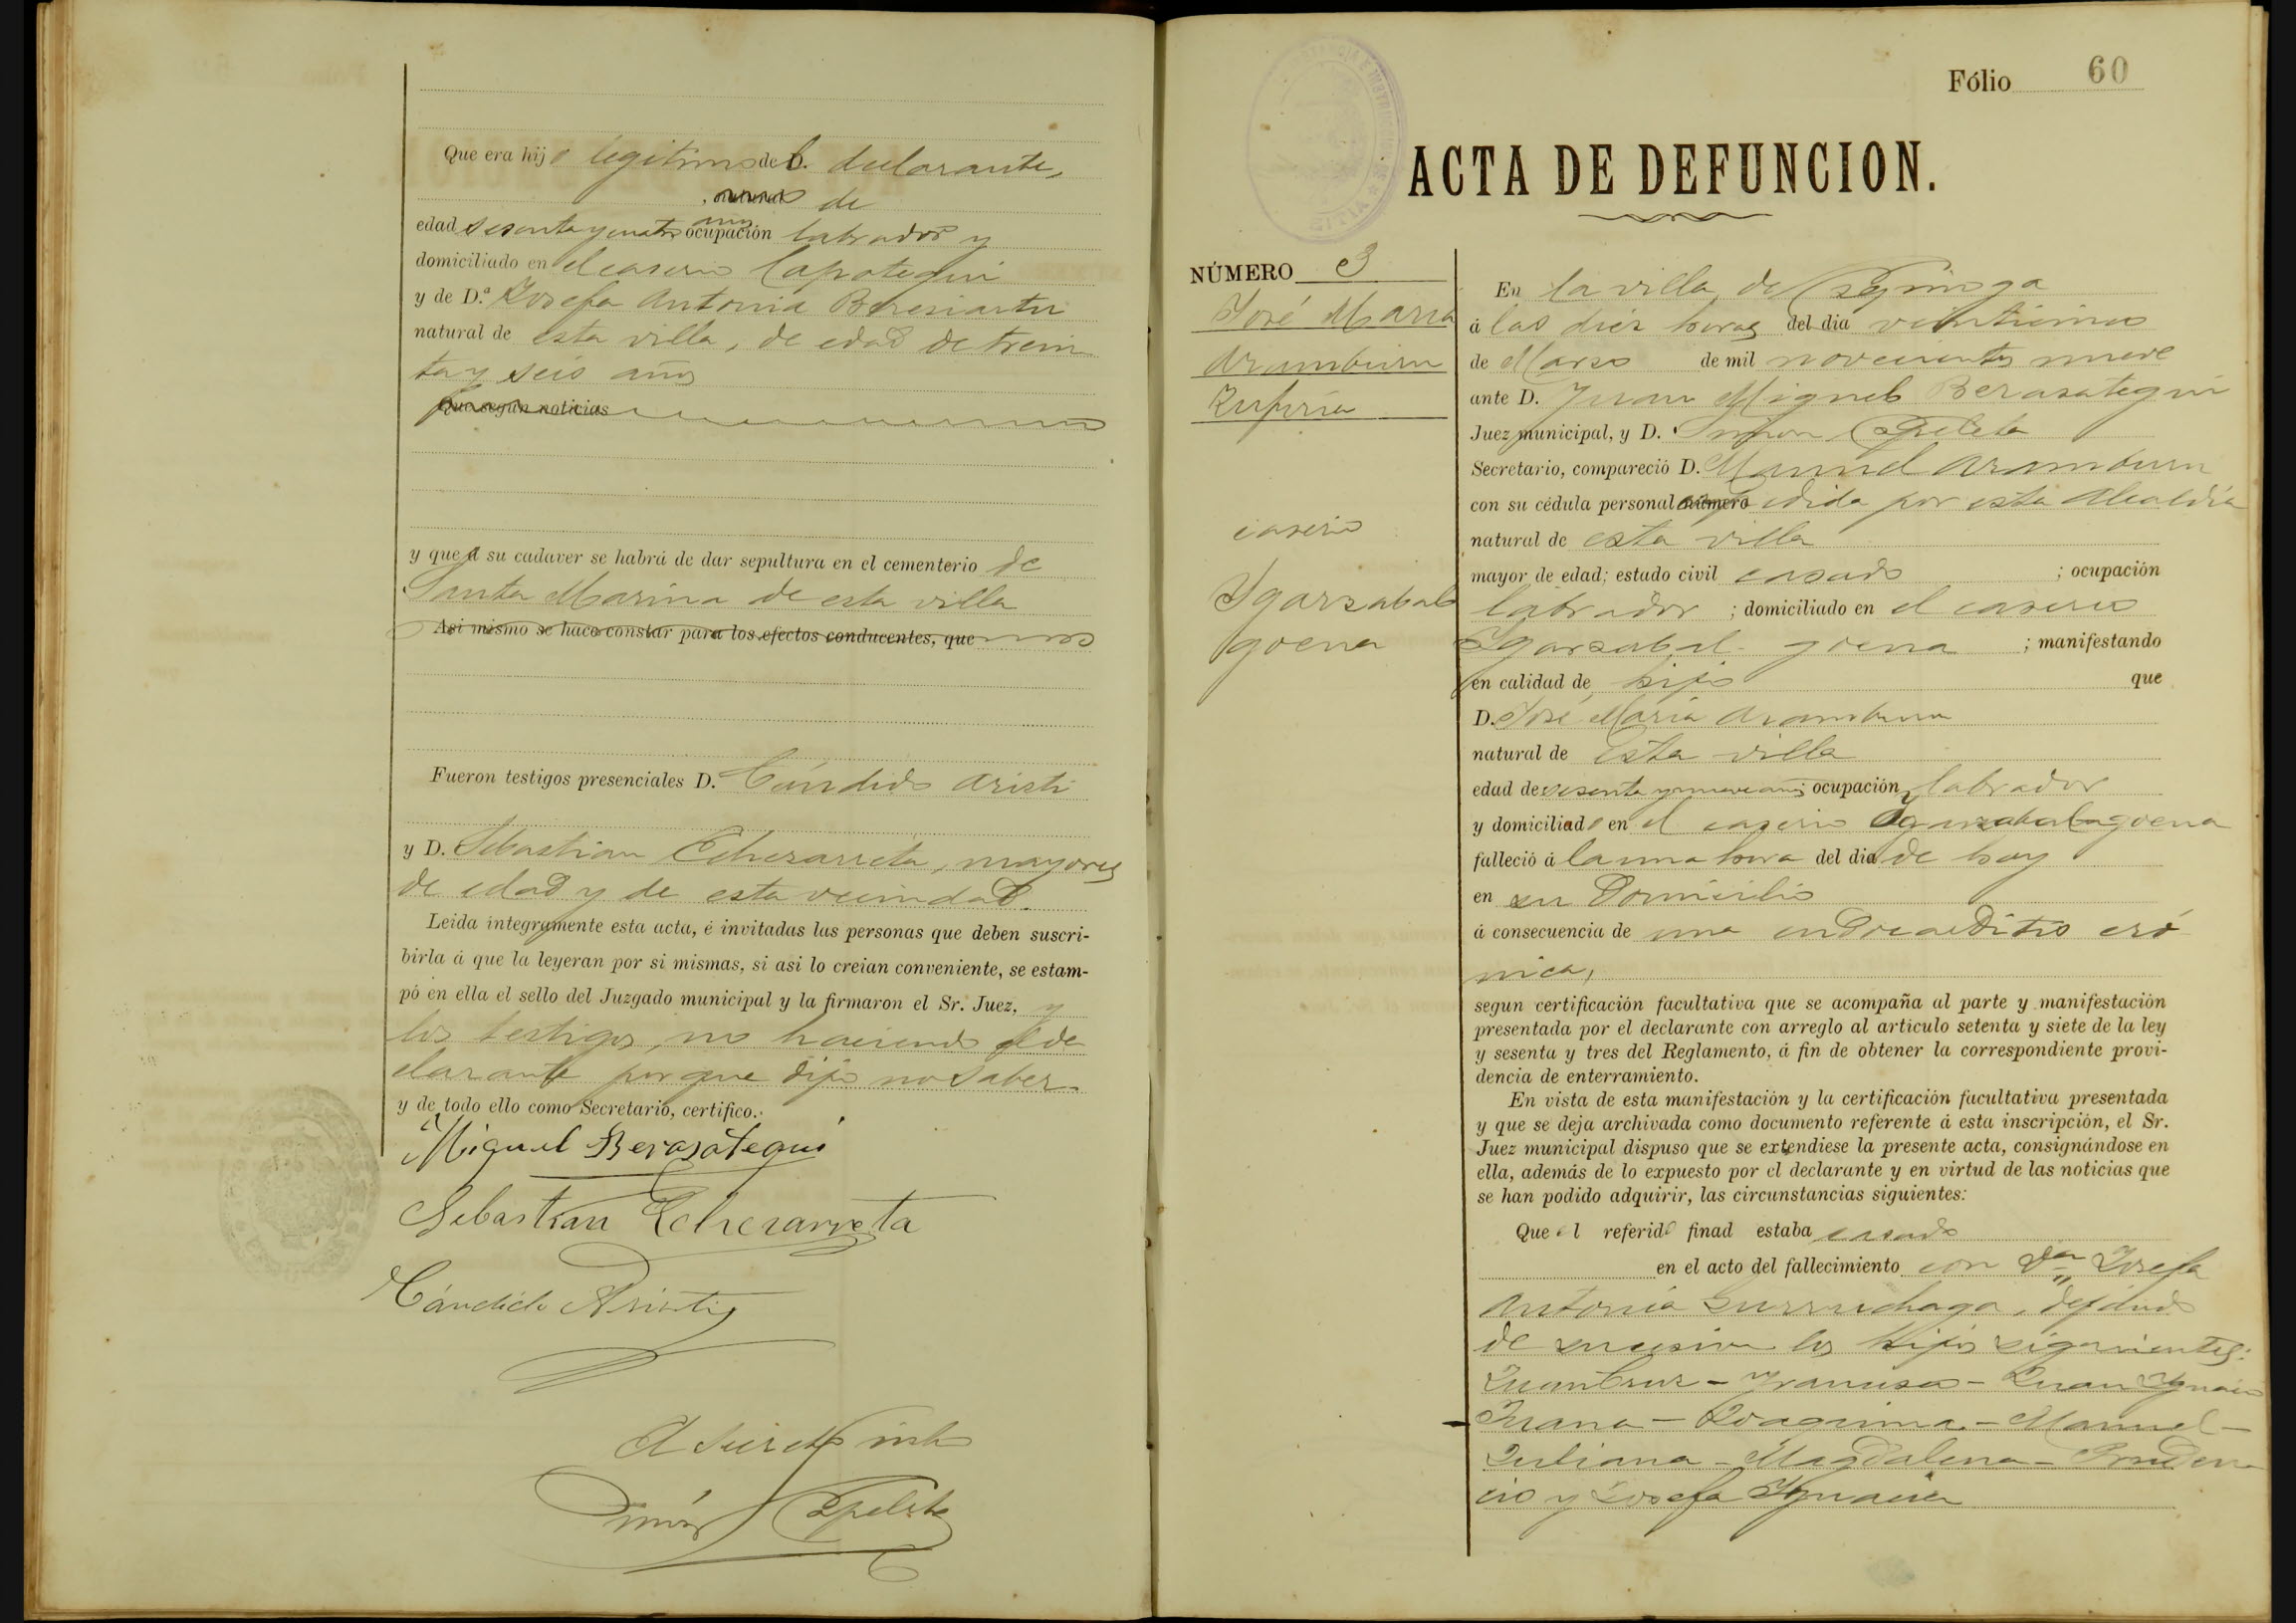 Que era hijo legitimo del declarante,
de
edad sesenta y cuatro años ocupación labrador y
domiciliado en el caserio Capotegui
y de D.ª Josefa Antonia Beresiartu
natural de esta villa, de edad de trein
ta y seis años
Que segun noticias
y que á su cadaver se habrá de dar sepultura en el cementerio de
Santa Marina de esta villa
Asi mismo se hace constar para los efectos conducentes, que
Fueron testigos presenciales D. Cándido Aristi
y D. Sebastian Echezarreta, mayores
de edad y de esta vecindad.
Leida integramente esta acta, é invitadas las personas que deben suscri-
birla á que la leyeran por si mismas, si asi lo creian conveniente, se estam-
pó en ella el sello del Juzgado municipal y la firmaron el Sr. Juez, y
los testigos, no haciendo el de
clarante porque dijo no saber.
y de todo ello como Secretario, certifico.
Miguel Berasategui
Sebastian Echezarreta
Cándido Aristi
El Secreto
Simón Epelde
Fólio 60
ACTA DE DEFUNCION.
NÚMERO 3
José Maria
Aramburu
caserio
Igarzabal
goena
En la villa de
á las diez horas del dia veintiuno
de Marzo de mil novecientos nueve
ante D. Juan Miguel Berasategui
Juez municipal, y D. Simon Epelde
Secretario, compareció D. Manuel Aramburu
con su cédula personal número expedida por esta Alcaldia
natural de esta villa
mayor de edad; estado civil casado ; ocupación
labrador ; domiciliado en el caserio
Igarzabal-goena ; manifestando
en calidad de hijo que
D. José Maria Aramburu
natural de esta villa
edad de sesenta y nueve años ocupación labrador
y domiciliado en el caserio Igarzabalgoena
falleció á la una hora del dia de hoy
en su Domicilio
á consecuencia de una endocarditis cró
nica,
segun certificación facultativa que se acompaña al parte y manifestación
presentada por el declarante con arreglo al articulo setenta y siete de la ley
y sesenta y tres del Reglamento, á fin de obtener la correspondiente provi-
dencia de enterramiento.
En vista de esta manifestación y la certificación facultativa presentada
y que se deja archivada como documento referente á esta inscripción, el Sr.
Juez municipal dispuso que se extendiese la presente acta, consignándose en
ella, además de lo expuesto por el declarante y en virtud de las noticias que
se han podido adquirir, las circunstancias siguientes:
Que el referido finad estaba casado
en el acto del fallecimiento con Dña Josefa
Antonia Gurruchaga, dejando
de sucesion los hijos siguientes:
Juan Cruz - Francisca - Juan Ygnacio
Juana - Joaquina - Manuel -
Juliana - Magdalena - Pruden
cio y Josefa Ygnacia